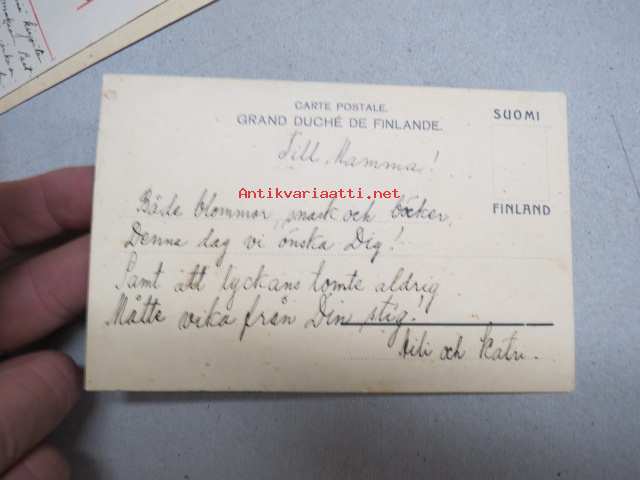 CARTE POSTALE.
GRAND DUCHÉ DE FINLANDE.
SUOMI
FINLAND
Till Mamma!
Antikvariaatti.net
Både blommor, snask och böcker,
Denna dag vi önska Dig!
Samt att lyckans tomte aldrig
Måtte vika från Din stig!
Aili och Katri.